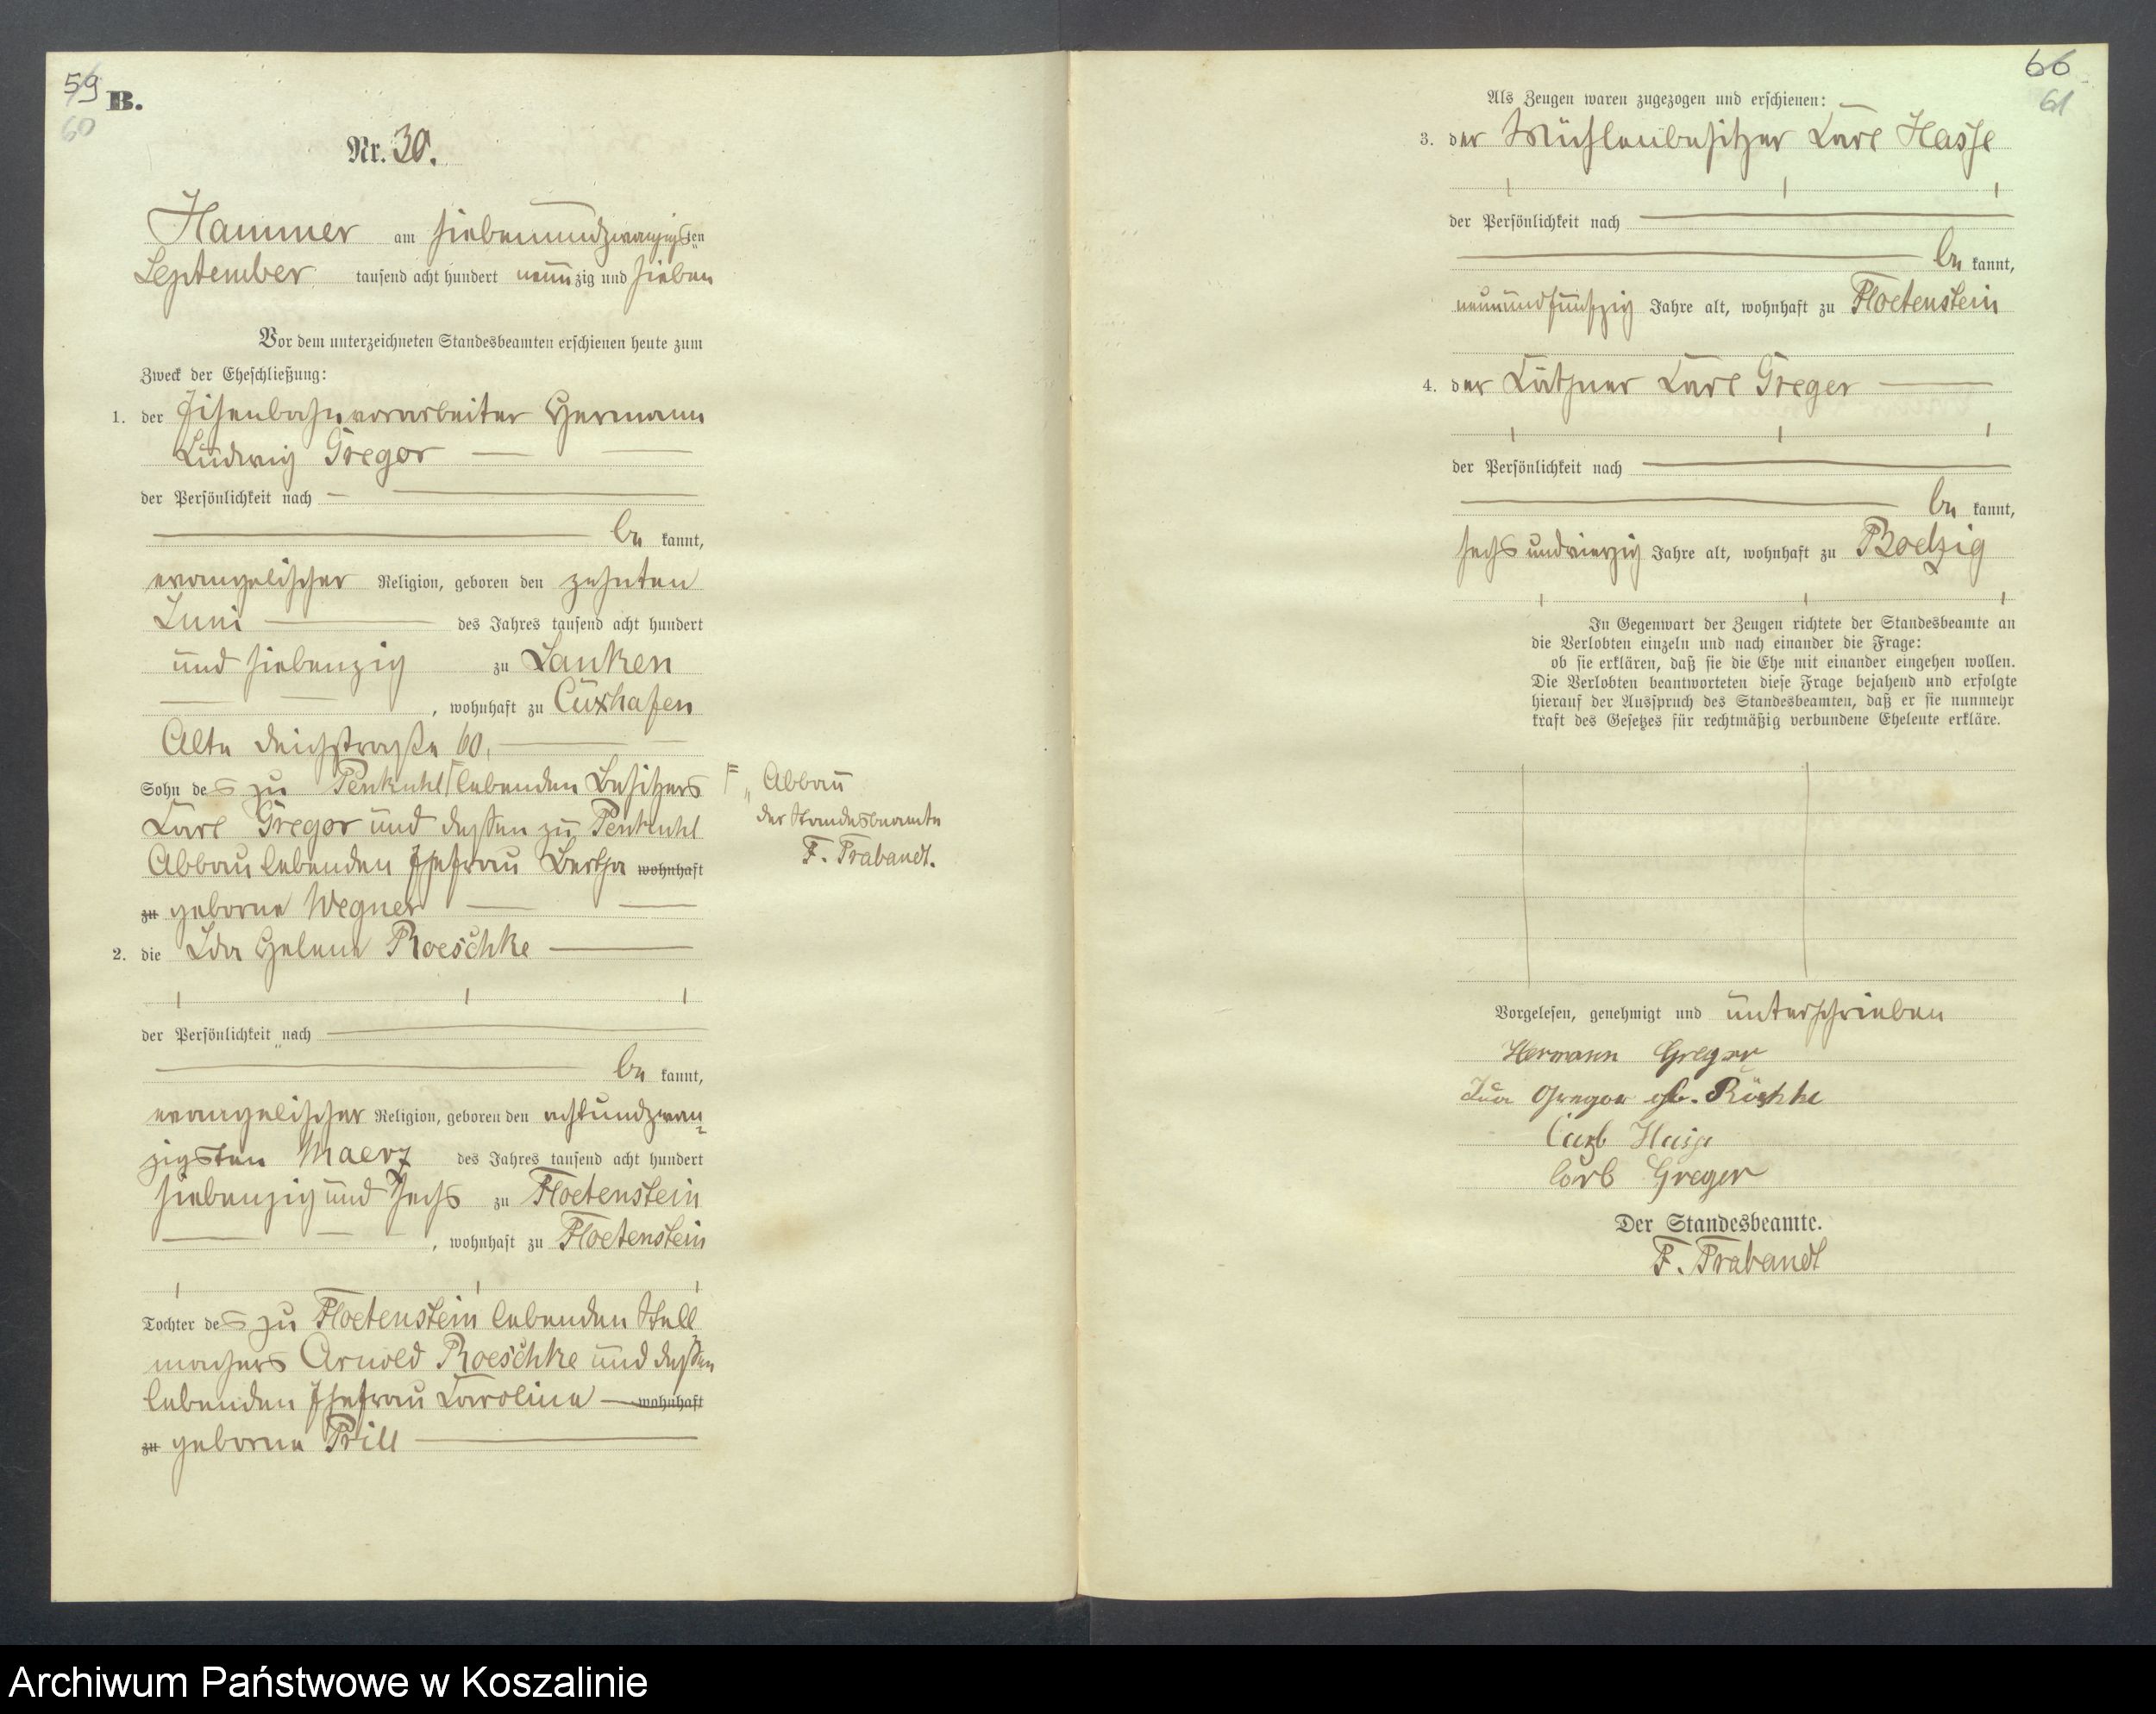 59
60
B.
Nr. 30.
Hammer am siebenundzwanzigsten
September tausend acht hundert neunzig und sieben
Vor dem unterzeichneten Standesbeamten erschienen heute zum
Zweck der Eheschließung:
1. der Eisenbahnvorarbeiter Hermann
Ludwig Gregor
der Persönlichkeit nach
bekannt,
evangelischer Religion, geboren den zehnten
Juni des Jahres tausend acht hundert
und siebenzig zu Lanken
, wohnhaft zu Cuxhafen
Alte Deichstraße 60,
Sohn des zu Penkuhl lebenden Besitzers
Carl Gregor und dessen zu Penkuhl
Abbau lebenden Ehefrau Bertha wohnhaft
zu geborne Wegner
2. die Ida Helene Roeschke
der Persönlichkeit nach
bekannt,
evangelischer Religion, geboren den achtundzwan=
zigsten Maerz des Jahres tausend acht hundert
siebenzig und sechs zu Floetenstein
, wohnhaft zu Floetenstein
Tochter des zu Floetenstein lebenden Stell
machers Arnold Roeschke und dessen
lebenden Ehefrau Caroline wohnhaft
zu geborne Prill
Abbau
der Standesbeamte
F. Trabandt.
66
61
Als Zeugen waren zugezogen und erschienen:
3. der Mühlenbesitzer Carl Hasse
der Persönlichkeit nach
bekannt,
neunundfünfzig Jahre alt, wohnhaft zu Floetenstein
4. der Kätner Carl Greger
der Persönlichkeit nach
bekannt,
sechsundvierzig Jahre alt, wohnhaft zu
In Gegenwart der Zeugen richtete der Standesbeamte an
die Verlobten einzeln und nach einander die Frage:
ob sie erklären, daß sie die Ehe mit einander eingehen wollen.
Die Verlobten beantworteten diese Frage bejahend und erfolgte
hierauf der Ausspruch des Standesbeamten, daß er sie nunmehr
kraft des Gesetzes für rechtmäßig verbundene Eheleute erkläre.
Vorgelesen, genehmigt und unterschrieben
Hermann Gregor
Ida Gregor geb. Röschke
Carl Hasse
Carl Greger
Der Standesbeamte.
F. Trabandt
Archiwum Państwowe w Koszalinie